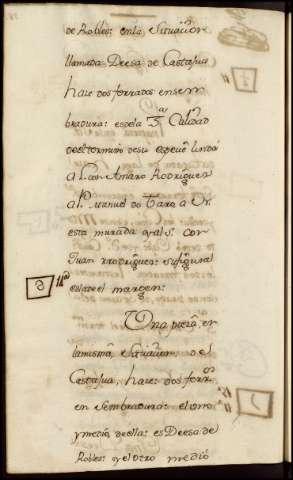 de Robles: en la Situacion
llamada Deesa de Castasua
haze dos ferrados en sem
bradura: es de la 3ª Calidad
de el termino de su especie linda
a L. con Amaro Rodriguez
al P. Manuel do Barro a
esta murada y al S. con
Juan Rodriguez: su figura
es la de el margen:
Una pieza, en
la misma Situacion de
Castasua, haze dos ferrs
en Sembradura: el uno
y medio de ella: es Deesa de
Robles: y el otro medio